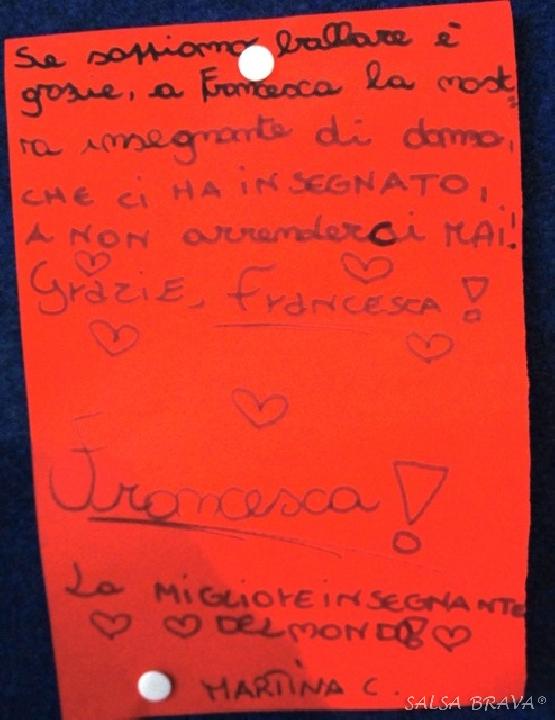 Se sappiamo ballare è
grazie, a Francesca la nost
ra insegnante di danza,
CHE ci HA iNSEGNATO,
A NON arrenderci MAi!
GraziE, FrancESCA!
Francesca!
La MiGLiOrE iNSEGNANTE
DEL MONDO!
MARTiNA C.
SALSA BRAVA®